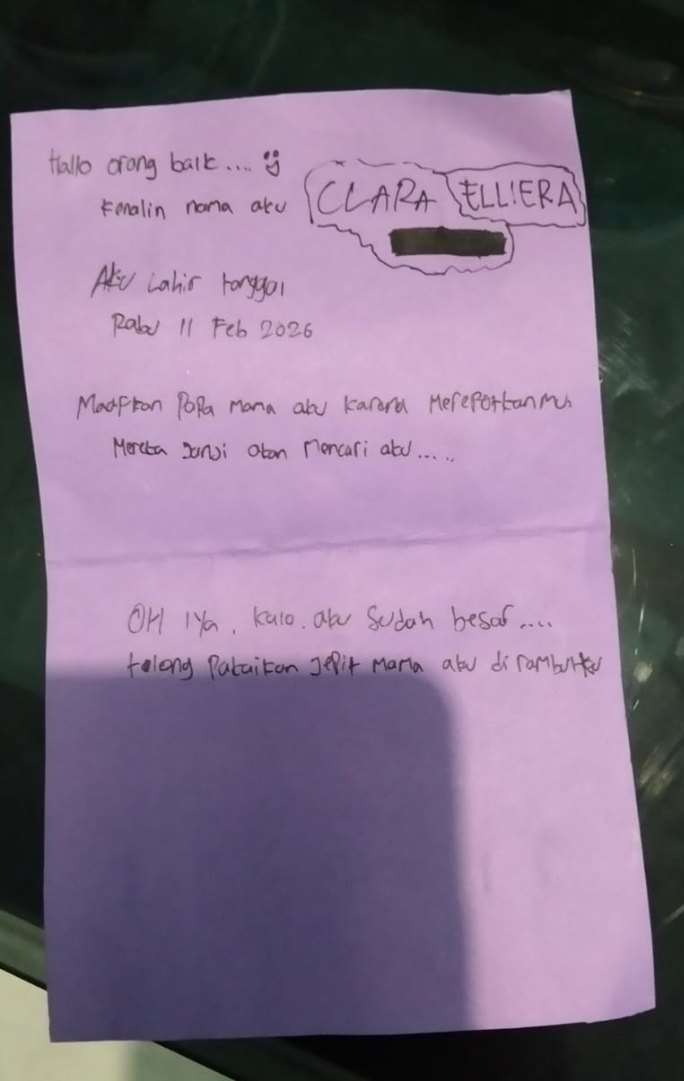 Hallo orang baik.... :)
Kenalin nama aku CLARA ELLIERA
Aku Lahir tanggal
Rabu 11 Feb 2026
Maafkan Papa Mama aku karana Merepotkanmu.
Mereka Janji akan Mencari aku.....
OH iYa, kalo. aku Sudah besar....
tolong Pakaikan Jepit Mama aku di rambutku